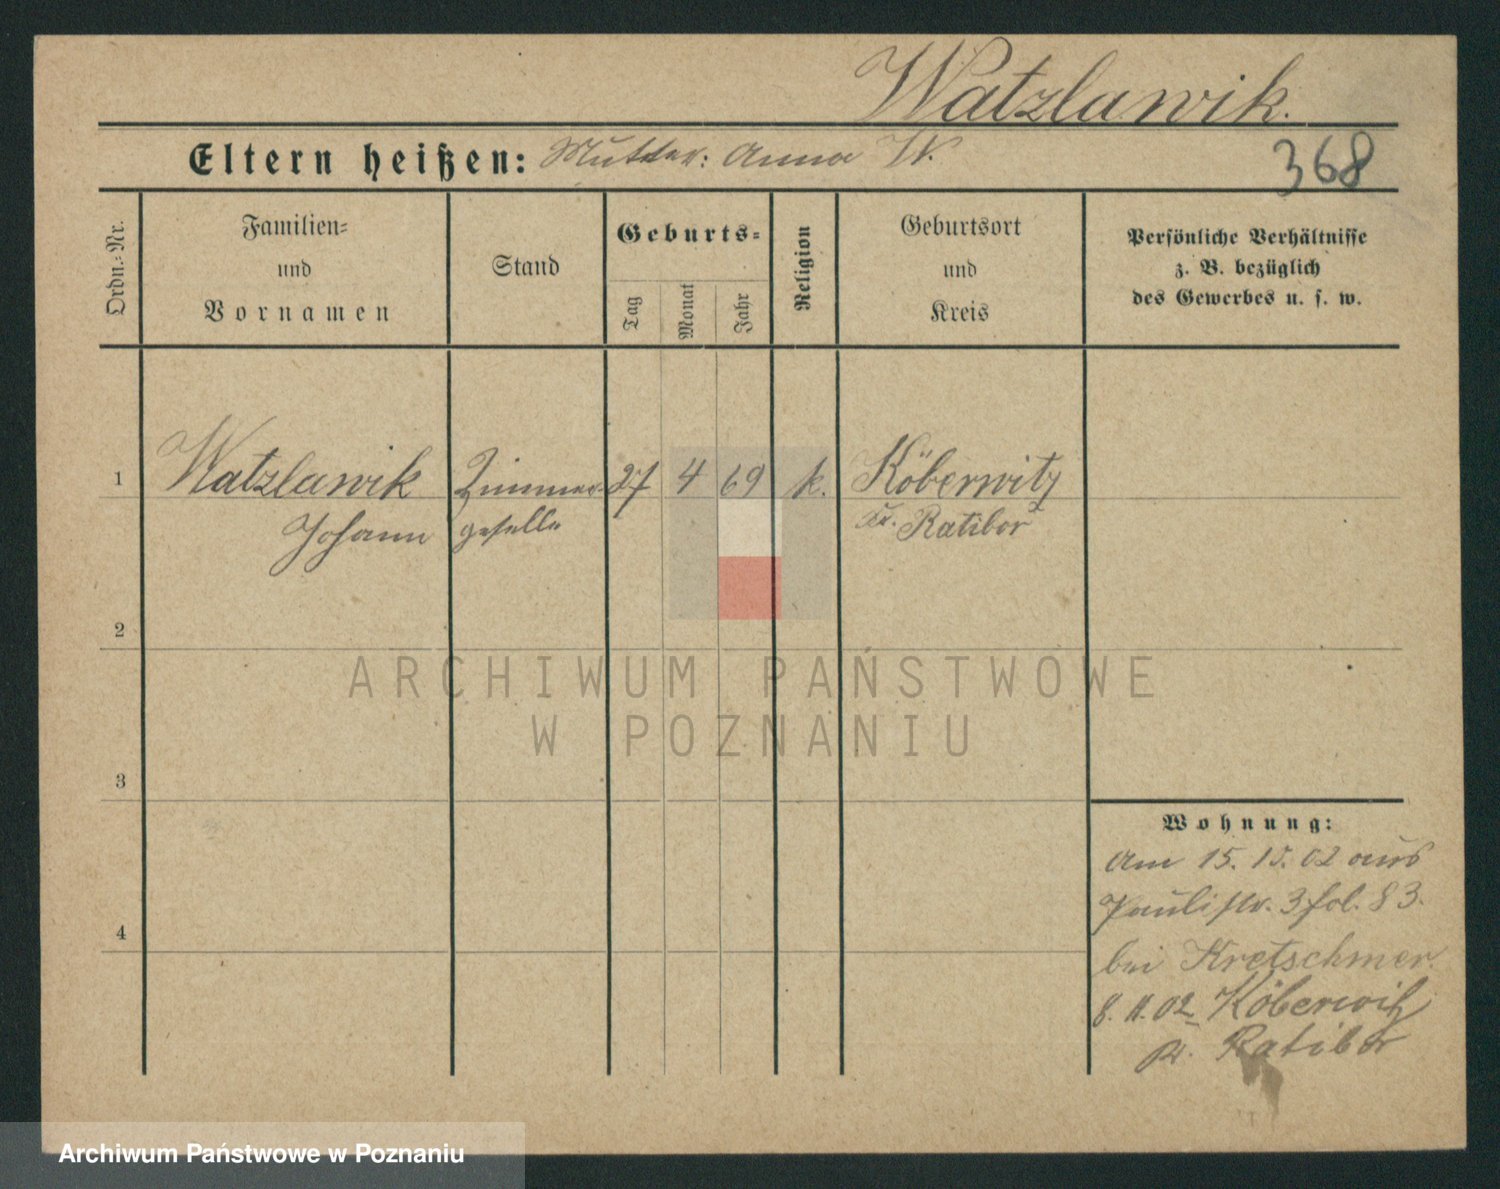 Watzlawik.
Eltern heißen: Mutter: Anna W.
368
Ordn.=Nr.
Familien=
und
Vornamen
Stand
Geburts=
Tag
Monat
Jahr
Religion
Geburtsort
und
Kreis
Persönliche Verhältnisse
z. B. bezüglich
des Gewerbes u. s. w.
1 Watzlawik Zimmer- 27 4 69 k. Köberwitz
Johann geselle Kr. Ratibor
2
3
4
Wohnung:
Am 15. 02 aus
Paulistr. 3 fol. 83.
bei Kretschmer.
8. 11. 02 Köberwitz
Kr. Ratibor
ARCHIWUM PAŃSTWOWE
W POZNANIU
Archiwum Państwowe w Poznaniu